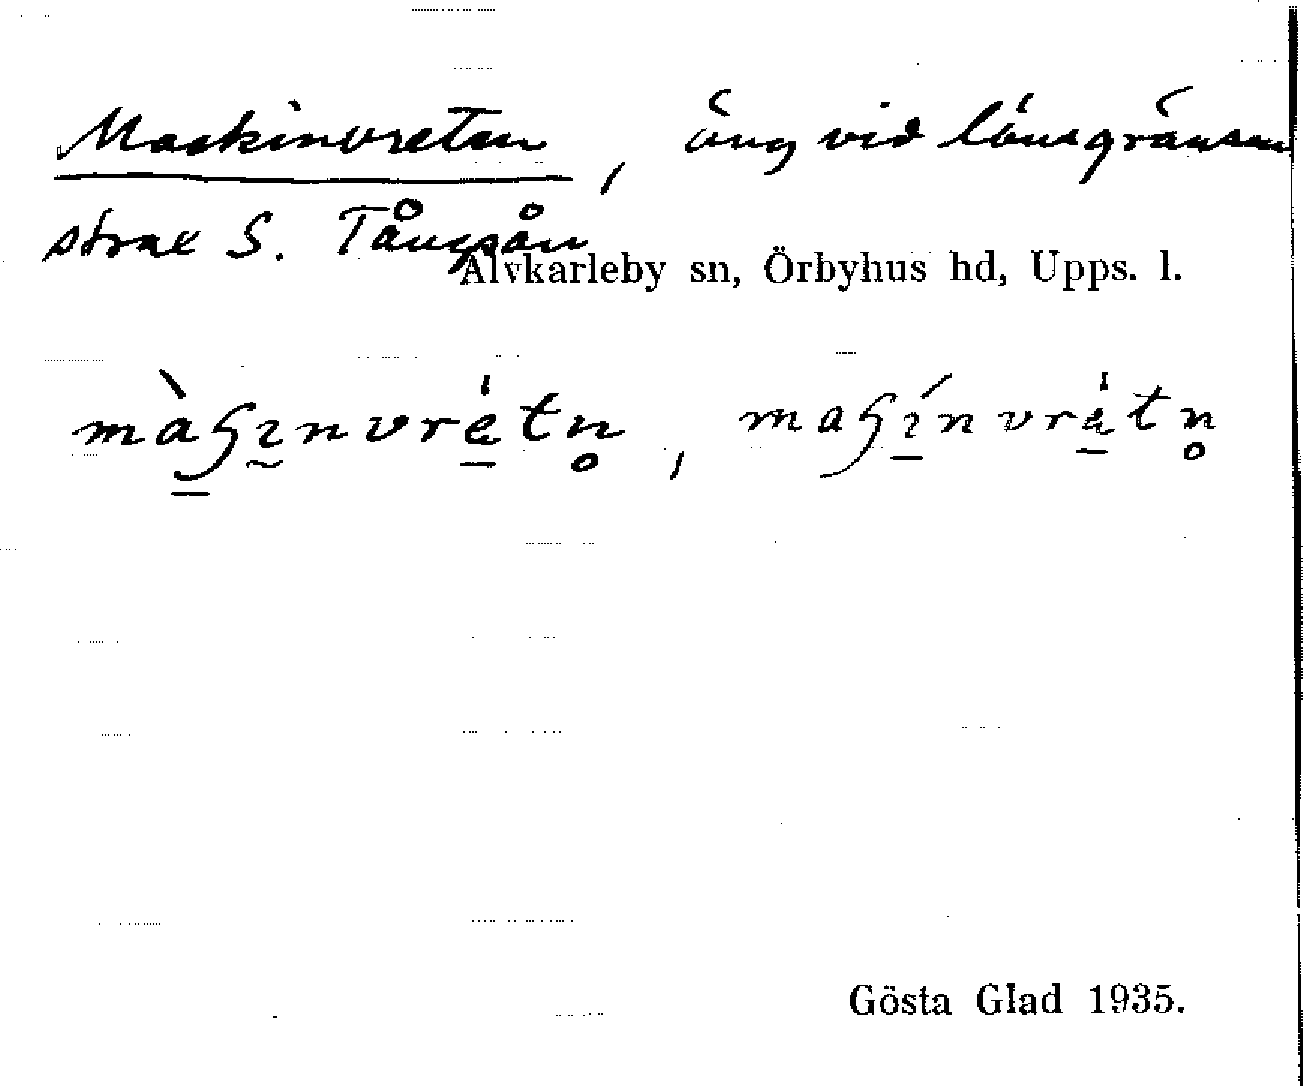 Maskinvreten, äng vid länsgränsen
strax S. Tångsån
Älvkarleby sn, Örbyhus hd, Upps. l.
Gösta Glad 1935.